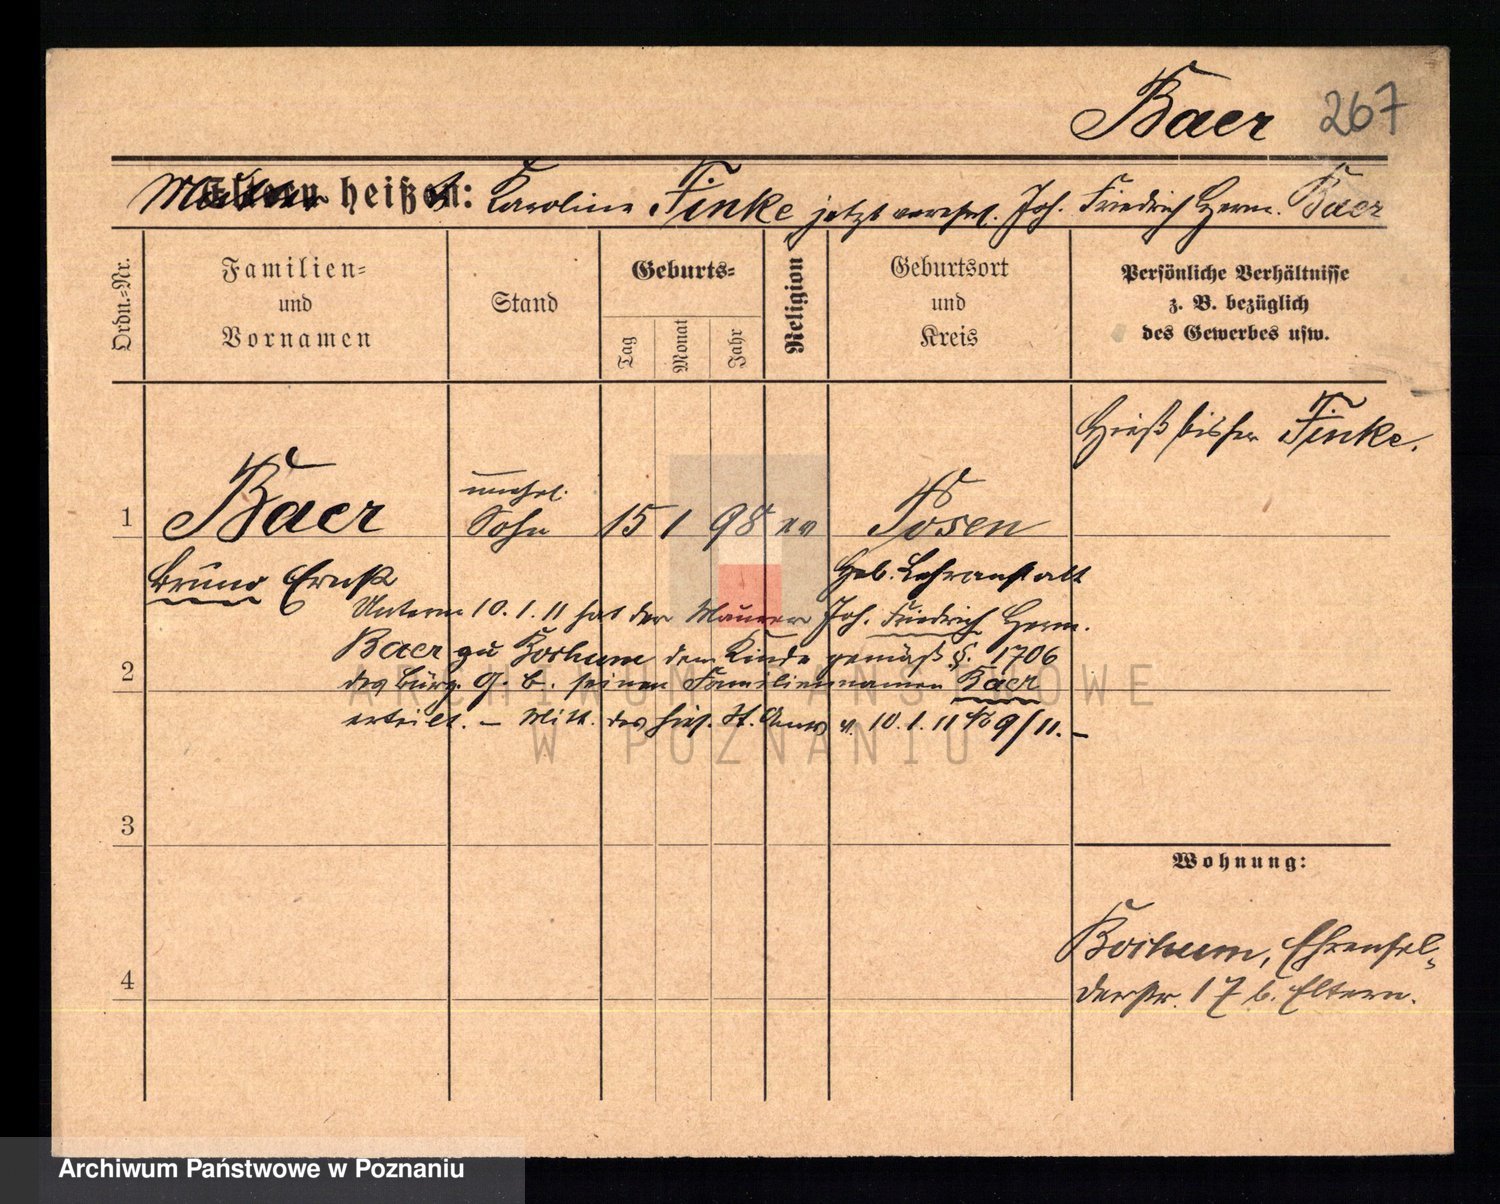 Baer 267
Mutter heißt: Karoline Finke jetzt verehel. Joh. Friedrich Herm. Baer
Ordn.-Nr.
Familien-
und
Vornamen
Stand
Geburts-
Tag
Monat
Jahr
Religion
Geburtsort
und
Kreis
Persönliche Verhältnisse
z. B. bezüglich
des Gewerbes usw.
Hieß bisher Finke.
unehel.
1 Baer Sohn 15 1 98 ev Posen
Bruno Ernst Heb. Lehranstalt
Unterm 10. 1. 11 hat der Maurer Joh. Friedrich Herm.
Baer zu Bochum dem Kinde gemäß §. 1706
2
des Bürg. G. B. seinen Familiennamen Baer
erteilt. – Mitt. des hies. St. Amts v. 10. 1. 11 No 9/11. –
ARCHIWUM PAŃSTWOWE
W POZNANIU
3
Wohnung:
Bochum, Ehrenfel-
derstr. 17 b. Eltern.
4
Archiwum Państwowe w Poznaniu